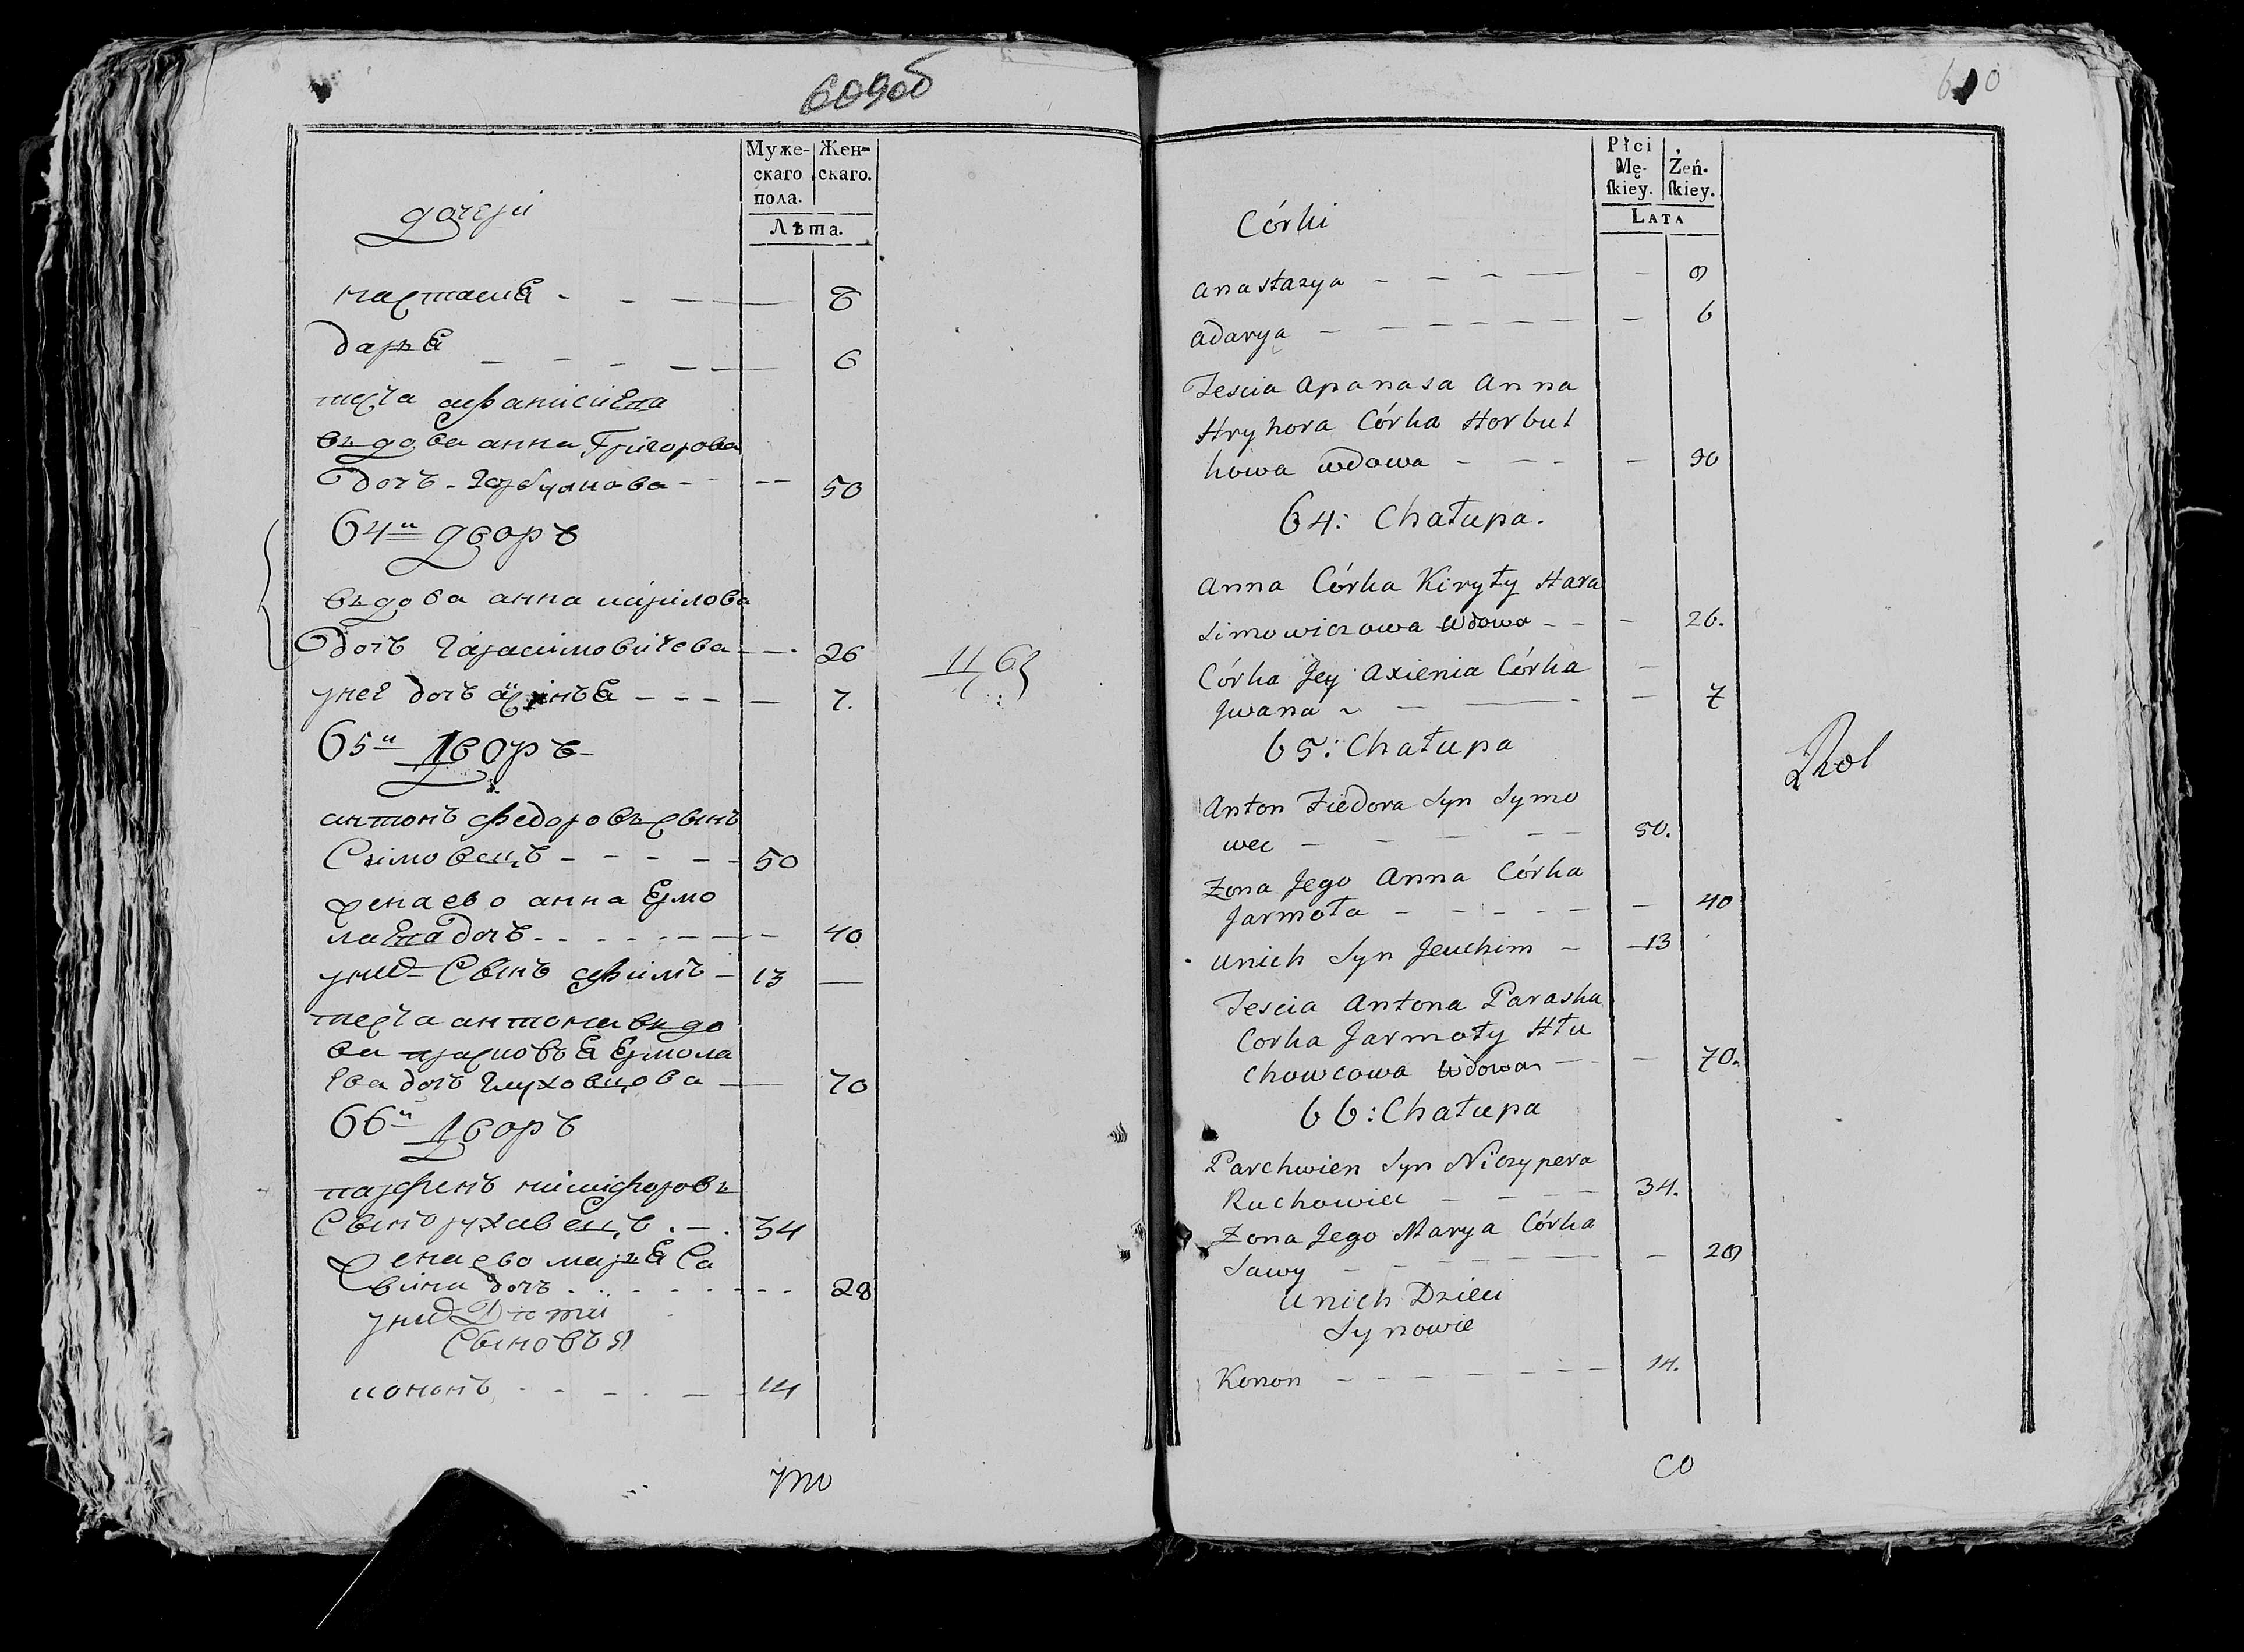 609об
Муже-
скаго
пола.
Жен-
скаго.
Лѣта.
дочери
настасиѣ - - - 8
дарьѣ - - - 6
тесча афанасиѣва
вьдова анна Григорова
дочъ - Горбулкова - - - 50
64й дворъ
вьдова анна кирилова
дочъ Гарасимовичева - - 26
унеѣ дочъ - - - 7.
65й Дворъ
антонъ Федоровъ сынъ
Симовецъ - - - - 50
жена ево анна Ермо
лаѣва дочъ - - - - 40
уних Сынъ ефимъ - 13 —
тесча антона вьдо
ва прасковьѣ Ермола
ева дочъ Глуховцова — 70
66й Дворъ
парфенъ никифоровъ
Сынъ рухавецъ - - 34
жена ево марьѣ Са
вина дочъ - - - 28
уних Дети
Сыновья
кононъ - - - - 14
610
Płci
Mę-
ſkiey.
Żeń-
ſkiey.
LATA
Córki
Anastazya - - - - 8
Adarya - - - - - 6
Tescia Apanasa Anna
Hryhora Córka Horbul
kowa wdowa - - - 50
64: Chałupa.
Anna Córka Kiryły Hara
simowiczowa wdowa - - - 26.
Córka Jey Axienia Córka
Jwana - - - 7
65: Chałupa
Anton Fiedora Syn Symo
wec - - - - 50.
Zona Jego Anna Córka
Jarmoła - - - - - 40
Unich Syn Jeuchim - 13
Tescia Antona Paraska
Corka Jarmoły Hłu
chowcowa wdowa - - 70.
66: Chałupa
Parchwien Syn Niczypera
Ruchowiec - - - 34.
Zona Jego Marya Córka
Sawy - - - - 28
Unich Dzieci
Synowie
Konon - - - - - - 14.